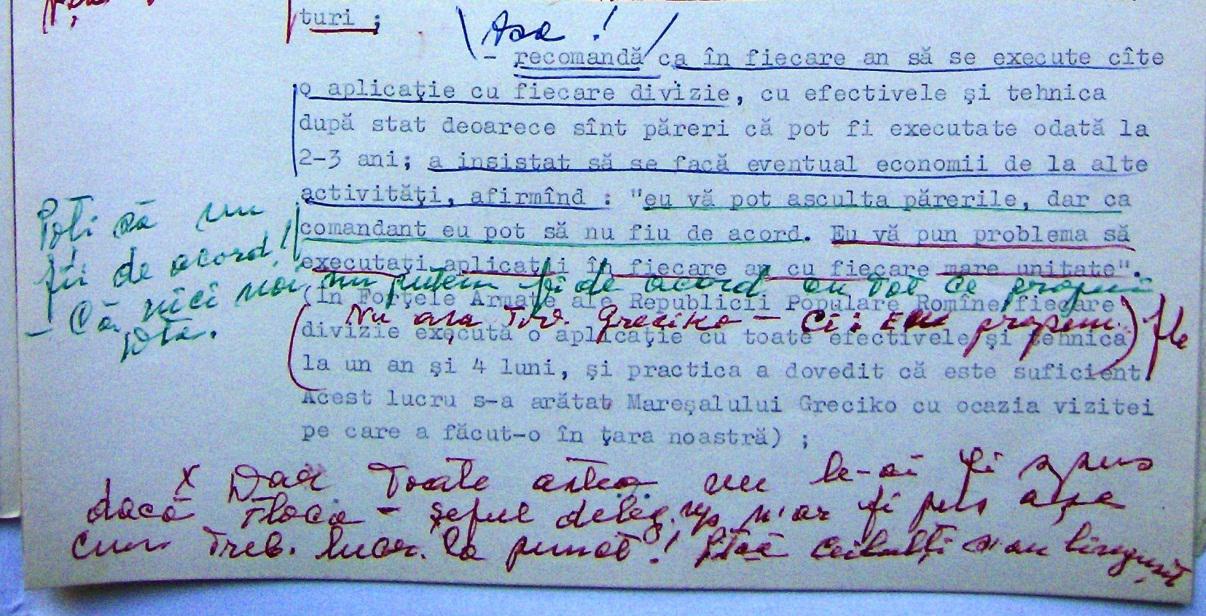 turi ;
Asa !
- recomandă ca în fiecare an să se execute cîte
o aplicaţie cu fiecare divizie, cu efectivele şi tehnica
după stat deoarece sînt păreri că pot fi executate odată la
2-3 ani; a insistat să se facă eventual economii de la alte
activităţi, afirmînd : "eu vă pot asculta părerile, dar ca
comandant eu pot să nu fiu de acord. Eu vă pun problema să
executaţi aplicaţii în fiecare an cu fiecare mare unitate".
Poti să nu
fii de acord!
- Că nici noi nu putem fi de acord cu tot ce propui
Dta.
(In Forţele Armate ale Republicii Populare Romîne fiecare
Nu asa Tov. Greciko - ci : Eu propun.
divizie execută o aplicaţie cu toate efectivele şi tehnica
la un an şi 4 luni, şi practica a dovedit că este suficient
Acest lucru s-a arătat Mareşalului Greciko cu ocazia vizitei
pe care a făcut-o în ţara noastră) ;
x Dar toate astea nu le-ai fi spus
dacă - şeful deleg. n'ar fi pus aşa
cum treb. lucr. la punct !